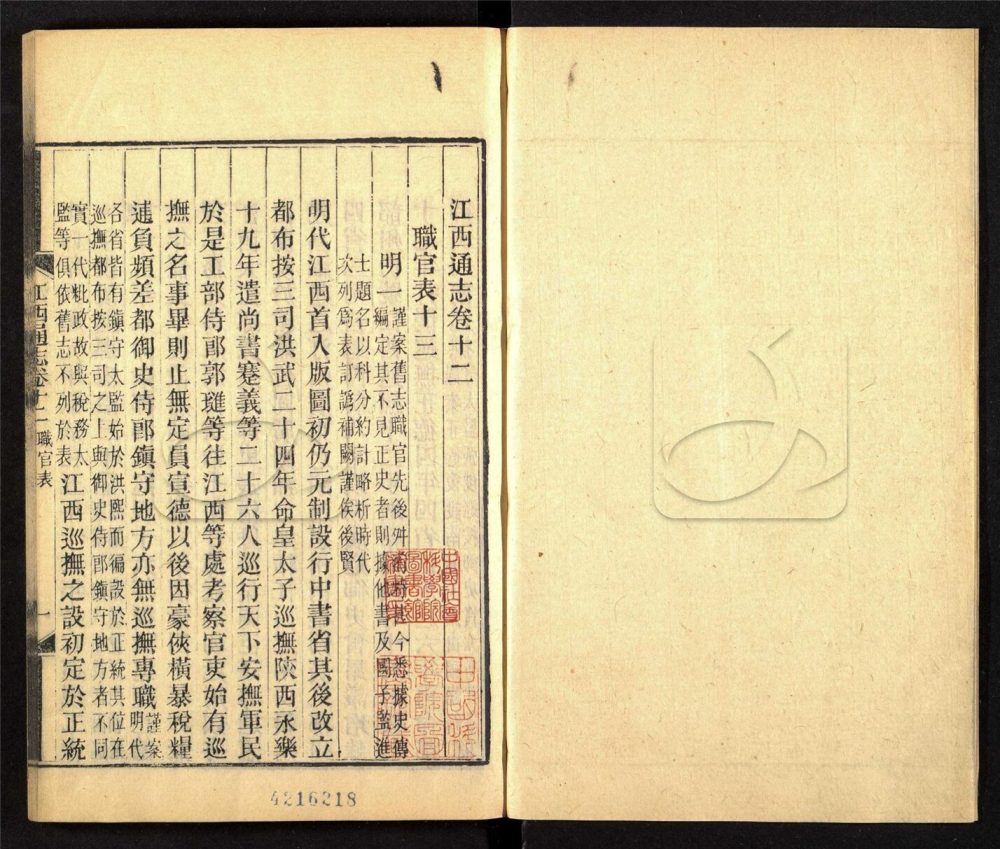 江西通志卷十二
職官表十三
明一
謹案舊志職官先後舛
今悉據史傳
編定其不見正史者則據他書及國子監進
士題名以科分約計略析時代
次列爲表訂譌補闕謹俟後賢
明代江西首入版圖初仍元制設行中書省其後改立
都布按三司洪武二十四年命皇太子巡撫陝西永樂
十九年遣尚書蹇義等二十六人巡行天下安撫軍民
於是工部侍郎郭璡等往江西等處考察官吏始有巡
撫之名事畢則止無定員宣德以後因豪俠橫暴稅糧
逋負頻差都御史侍郎鎮守地方亦無巡撫專職
謹案
明代
各省皆有鎮守太監始於洪熙而徧設於正統其位在
巡撫都布按三司之上與御史侍郎鎮守地方者不同
實一代粃政故與稅務太
監等俱依舊志不列於表
江西巡撫之設初定於正統
江西通志卷十二 職官表
一
中國社會
科學院
圖書館
4216218